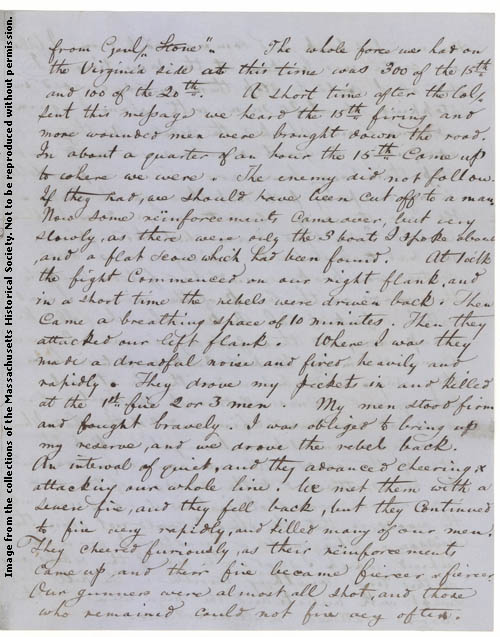 Image from the collections of the Massachusetts Historical Society. Not to be reproduced without permission.
from Genl "Stone". The whole force we had on
the Virginia side at this time was 300 of the 15th
and 100 of the 20th. A short time after the Col.
sent this message we heard the 15th firing and
more wounded men were brought down the road.
In about a quarter of an hour the 15th came up
to where we were. The enemy did not follow.
If they had, we should have been cut off to a man.
Now some reinforcements came over, but very
slowly, as there were only the 3 boats I spoke about
, and a flat scow which had been found. At
the fight commenced on our right flank, and
in a short time the rebels were driven back. Then
came a breathing space of 10 minutes. Then they
attacked our left flank. Where I was they
made a dreadful noise and fired heavily and
rapidly. They drove my pickets in and killed
at the 1st fire 2 or 3 men. My men stood firm
and fought bravely. I was obliged to bring up
my reserve, and we drove the rebel back.
An interval of quiet, and they advanced cheering &
attacking our whole line. We met them with a
severe fire, and they fell back, but they continued
to fire very rapidly, and killed many of our men.
They cheered furiously, as their reinforcements
came up and their fire became fiercer & fiercer
Our gunners were almost all shot, and those
who remained could not fire very often.